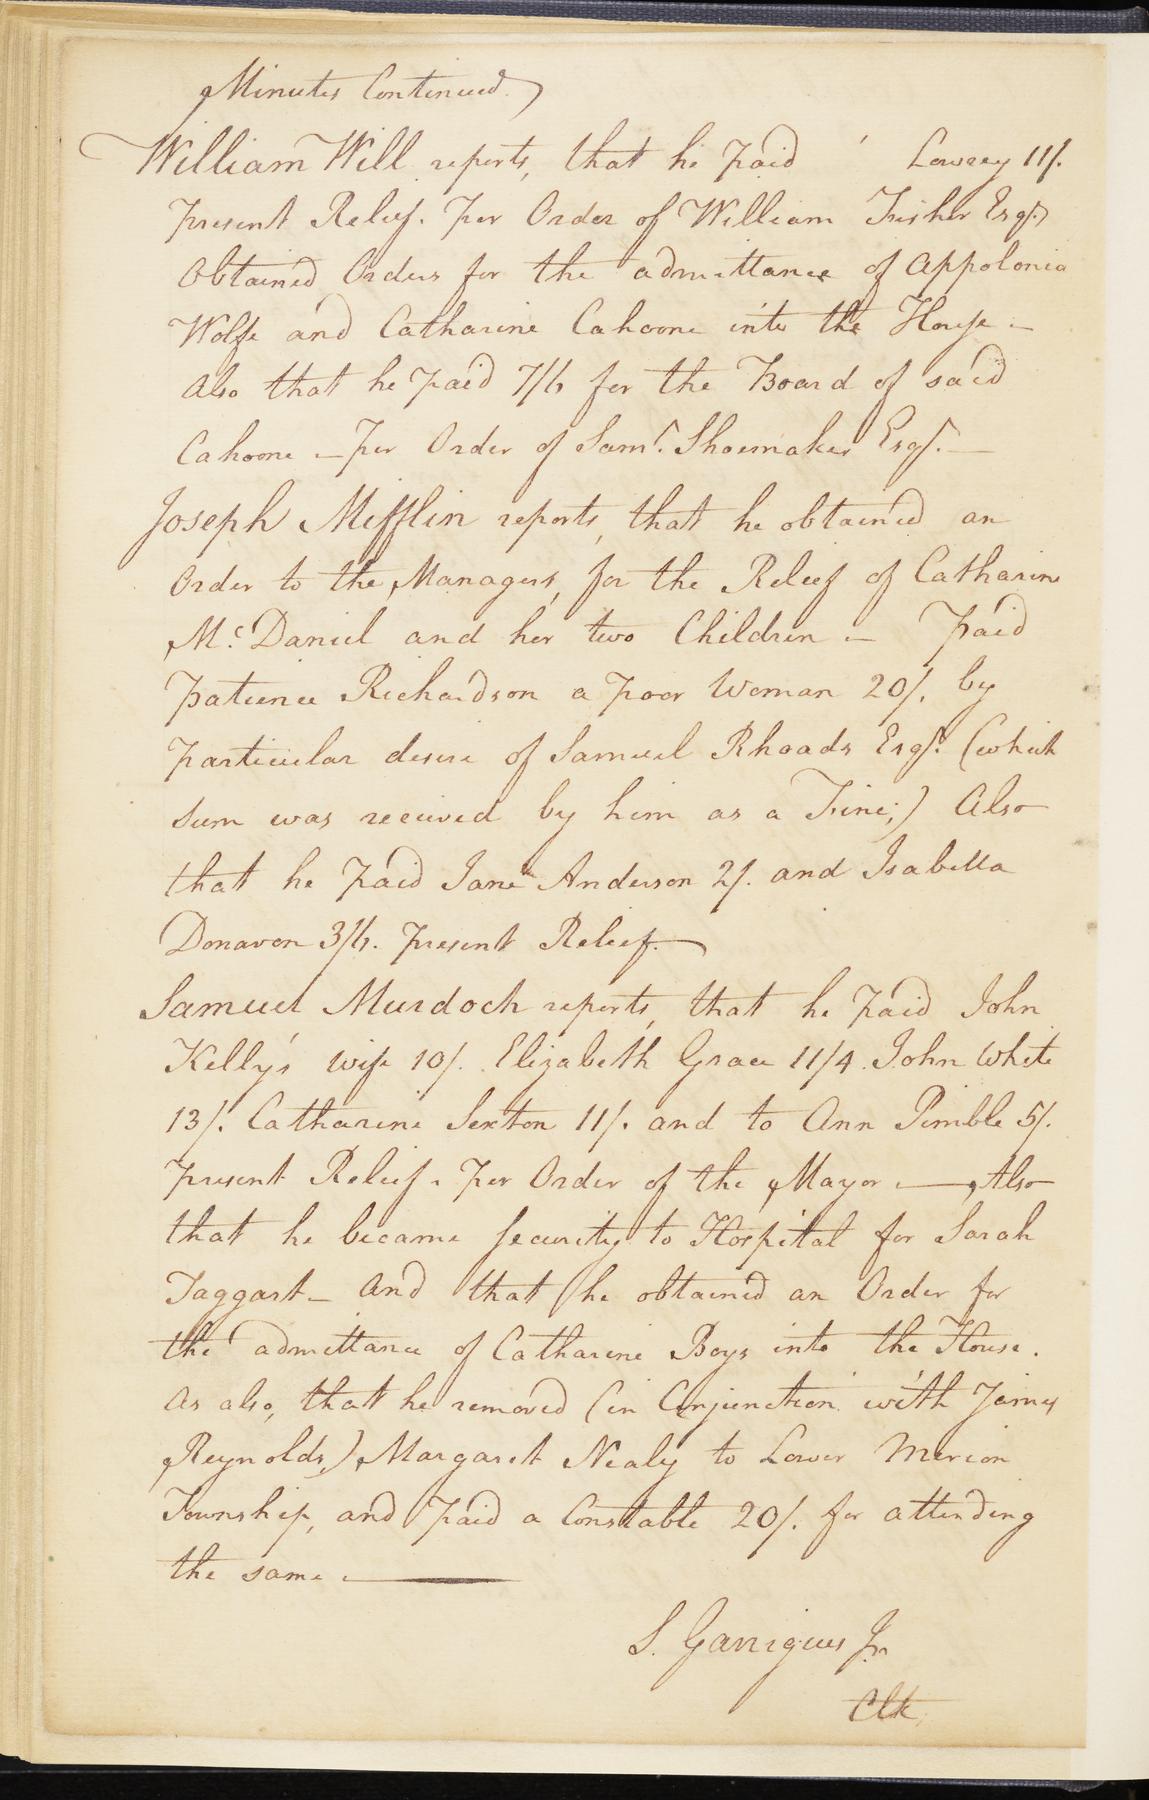 Minutes Continued.
William Will reports, that he paid Lowrey 11/.
present Relief. per Order of William Fisher Esqr.
Obtained Orders for the admittance of Appolonia
Wolfe and Catharine Cahoone into the House —
Also that he paid 7/6 for the Board of said
Cahoone — per Order of Saml. Shoemaker Esqr. —
Joseph Mifflin reports, that he obtained an
Order to the Managers, for the Relief of Catharine
Mc.Daniel and her two Children — Paid
Patience Richardson a poor Woman 20/. by
particular desire of Samuel Rhoads Esqr. (which
sum was received by him as a Fine;) Also
that he paid Jane Anderson 2/. and Isabella
Donavon 3/9. present Relief. —
Samuel Murdoch reports, that he paid John
Kelly's wife 10/. Elizabeth Grace 11/4. John White
13/. Catharine Sexton 11/. and to Ann Pimble 5/.
present Relief. per Order of the Mayor. — Also
that he became Security to Hospital for Sarah
Taggart — and that he obtained an Order for
the admittance of Catharine Boys into the House.
As also, that he removed (in Conjunction with James
Reynolds,) Margaret Nealy to Lower Merion
Township, and paid a Constable 20/. for attending
the same. —
S. Garrigues Jr.
Clk.